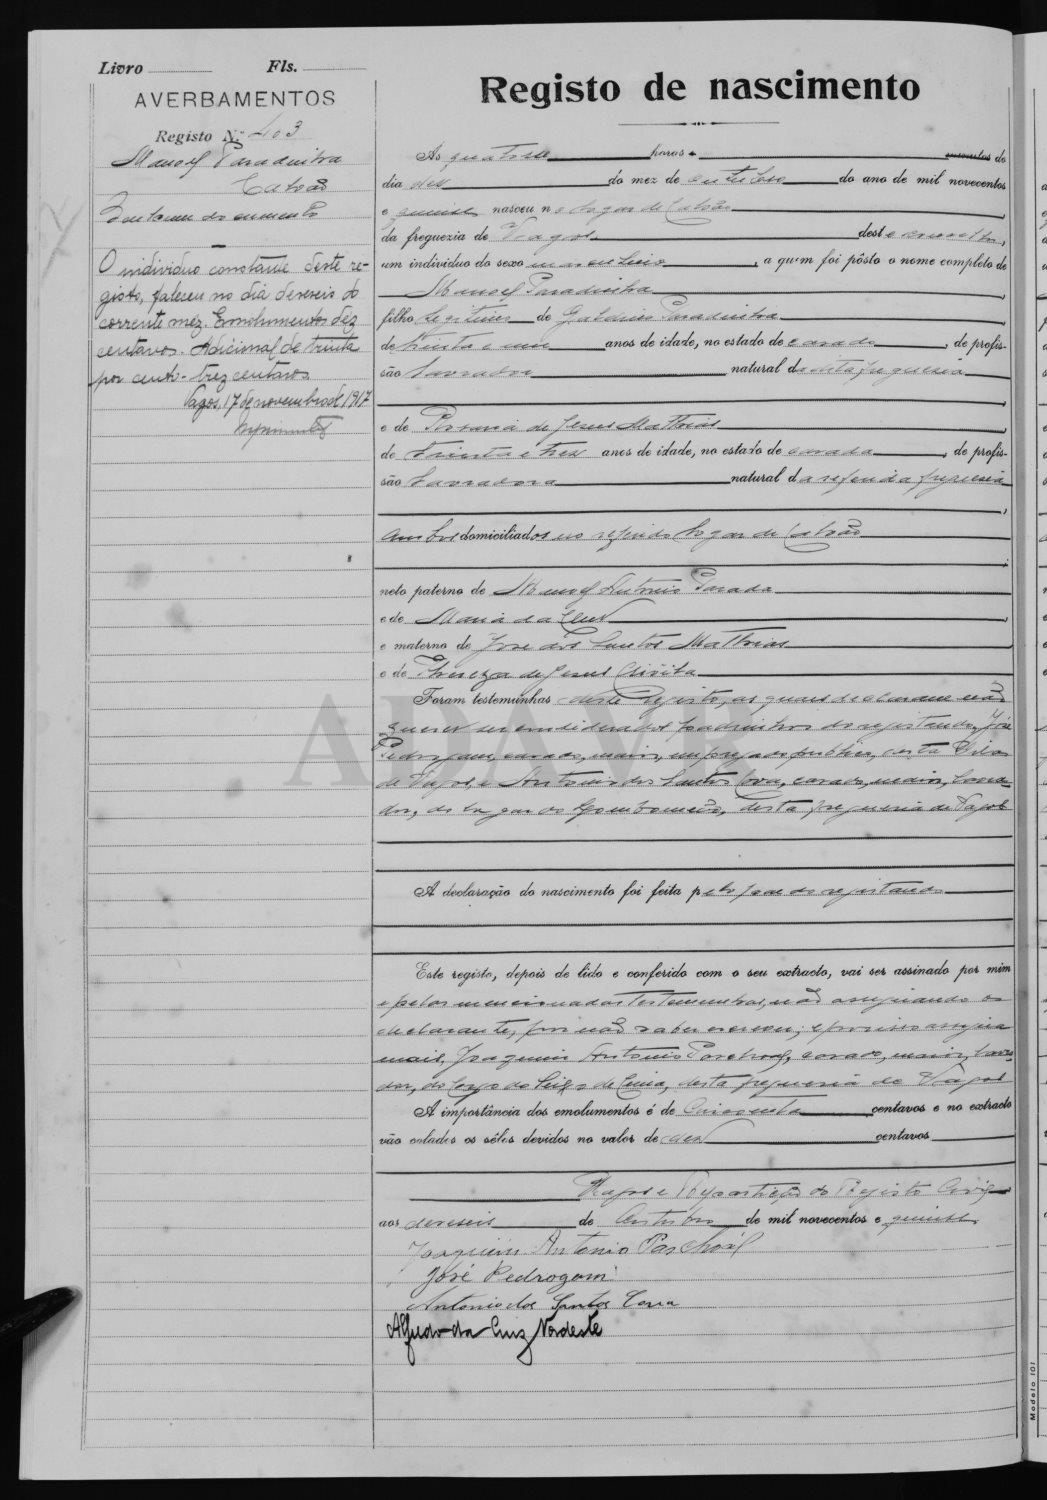 Livro Fls.
AVERBAMENTOS
Registo N.º 403
Manoel Paradinha
Calvão
O individuo constante deste re-
gisto, faleceu no dia dezeseis do
corrente mez. Emolumentos dez
centavos. Adicional de trinta
por cento - trez centavos
Vagos, 17 de novembro de 1917
Registo de nascimento
Ás quatorze horas minutos do
dia dez do mez de outubro do ano de mil novecentos
e quinze nasceu no logar de Calvão,
da freguezia de Vagos deste concelho,
um individuo do sexo masculino, a quem foi pôsto o nome completo de
Manoel Paradinha,
filho legitimo de Paradinha,
de trinta e anos de idade, no estado de casado, de profis-
são lavrador natural da dita freguesia
,
e de Rosaria de Jesus Mathias,
de trinta e trez anos de idade, no estado de casada, de profis-
são lavradora natural da referida freguesia
,
ambos domiciliados no referido logar de Calvão
;
neto paterno de Manoel Antonio Parada
e de Maria da Cruz,
e materno de José dos Santos Mathias,
e de Thereza de Jesus
Foram testemunhas deste registo, as quaes declararam não
querer ser considerados padrinhos do registando, José
Pedrogam, casado, maior, empregado publico, desta Vila
de Vagos, e Antonio dos Santos Cova, casado, maior, lavra-
dor, do logar do Lombomeão, desta freguesia de Vagos
A declaração do nascimento foi feita pelo pae do registando
Este registo, depois de lido e conferido com o seu extracto, vai ser assinado por mim
e pelas mencionadas testemunhas, não assignando o
declarante, por não saber escrever, e por isso assigna
mais, Joaquim Antonio Paschoal, casado, maior, lavra-
dor, do logar de de Cima, desta freguesia de Vagos
A importância dos emolumentos é de cincoenta centavos e no extracto
vão colados os sêlos devidos no valor de dez centavos
Vagos e Repartição do Registo Civil
aos dezeseis de Outubro de mil novecentos e quinze
Joaquim Antonio Paschoal
José Pedrogam
Antonio dos Santos Cova
Alfredo da Cruz Nordeste
ADAVR
Modelo 101